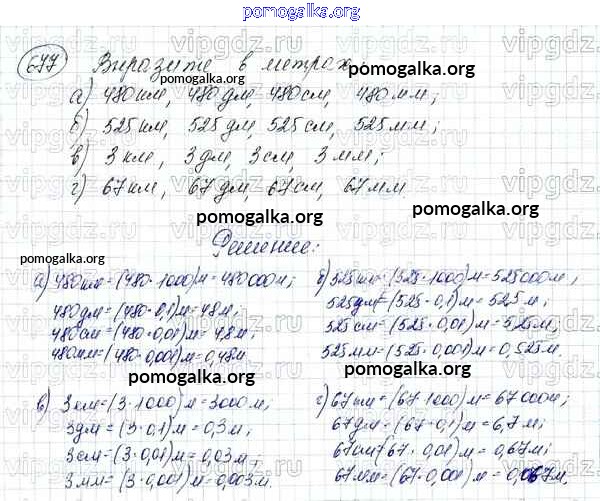 pomogalka.org
677 Выразите в метрах:
а) 480 км, 480 дм, 480 см, 480 мм;
б) 525 км, 525 дм, 525 см, 525 мм;
в) 3 км, 3 дм, 3 см, 3 мм;
г) 67 км, 67 дм, 67 см, 67 мм.
Решение:
а) 480 км = (480·1000) м = 480000 м;
480 дм = (480·0,1) м = 48 м;
480 см = (480·0,01) м = 4,8 м;
480 мм = (480·0,001) м = 0,48 м.
б) 525 км = (525·1000) м = 525000 м;
525 дм = (525·0,1) м = 52,5 м;
525 см = (525·0,01) м = 5,25 м;
525 мм = (525·0,001) м = 0,525 м.
в) 3 км = (3·1000) м = 3000 м;
3 дм = (3·0,1) м = 0,3 м;
3 см = (3·0,01) м = 0,03 м;
3 мм = (3·0,001) м = 0,003 м.
г) 67 км = (67·1000) м = 67000 м;
67 дм = (67·0,1) м = 6,7 м;
67 см = (67·0,01) м = 0,67 м;
67 мм = (67·0,001) м = 0,067 м.